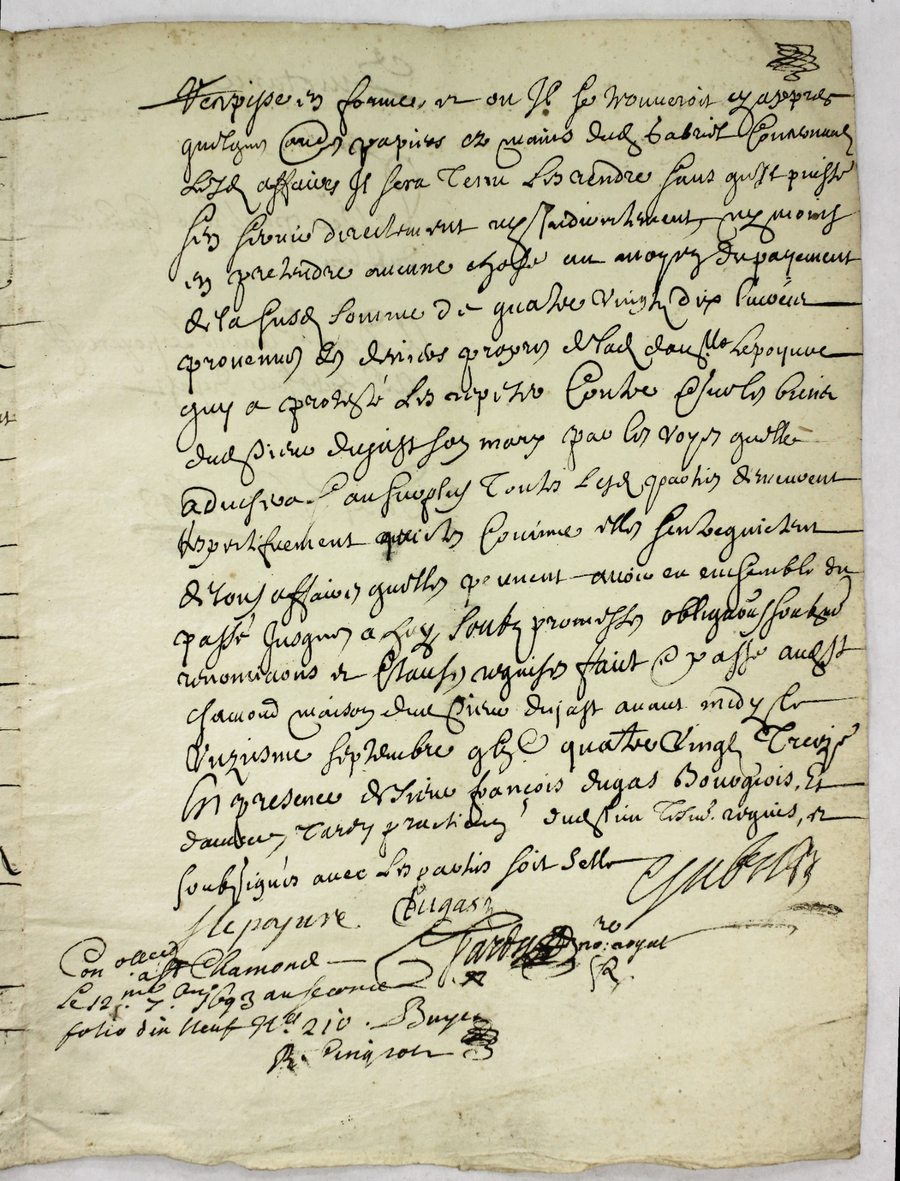 en forme, et ou Il se trouveroit cy appres
quelques papiers ez mains dud Gabriel Concernant
Lesd affaires Il sera Tenu Les rendre sans qu'Il puisse
sen servir directement ny Indirectement, ny moins
en pretendre aucune chose au moyen du payement
de la susd somme de quatre vingtz dix
provenues des deniers propres de lad dam^lle Lepoyure
quy a protesté Les repeter Contre & sur les biens
dud sieur dujast son mary par les voyes quelle
advisera & au surplus Toutes Lesd parties demeurent
respectivement quictes Comme elles sentrequictent
de tous affaires quelles peuvent avoir eu ensemble du
passé Jusques a huy soubz promesses obliga^ons soubz^ons
renon^cia^ons et Clauses requises faict & passé aud St
chamond maison dud sieur dujast avant midy Le
unziesme septembre gbzC quatre vingtz Treize
En presence de sieur françois dugas Bourgeois, Et
Tardy practicien dud lieu Tesm^s requis, et
soubsignés avec Les parties soit selle
Gabriel
J lepoyure Dugas
Tardy no^re royal
Con^ollé a St Chamond
Le 12^me 7^bre 1693 au second
folio dix neuf N° 210.
R